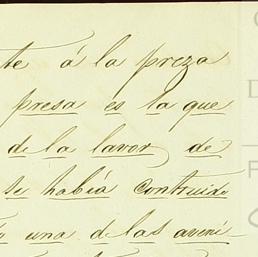 te á la preza
presa es la que
de la lavor de
se había contruido
una de las aveni